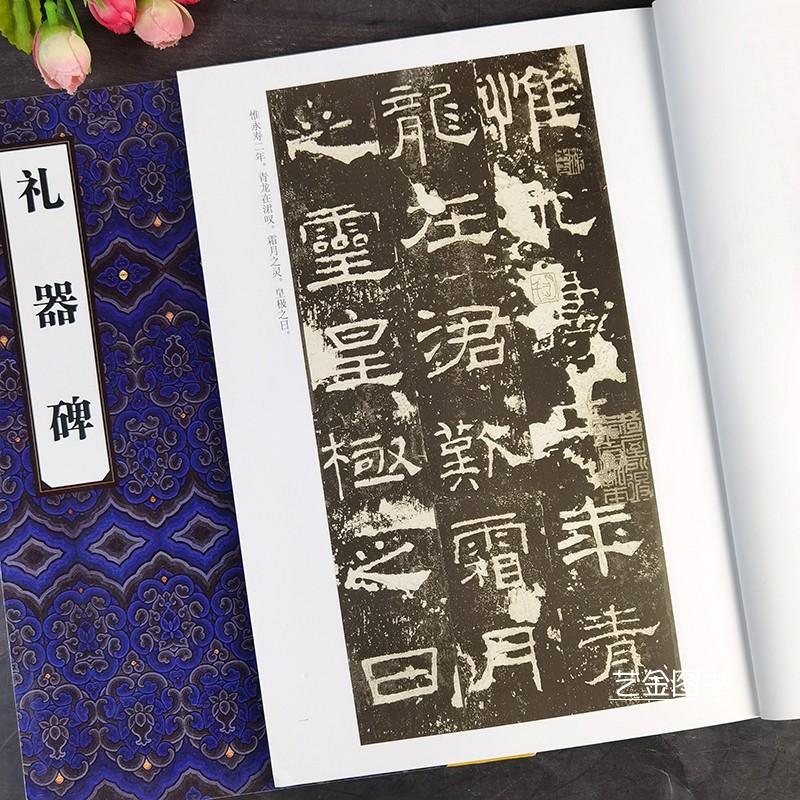 礼器碑
惟永壽年青
龍在涒歎霜月
之靈皇極之日
惟永寿二年。青龙在涒叹。霜月之灵。皇极之日。
一
艺金图书